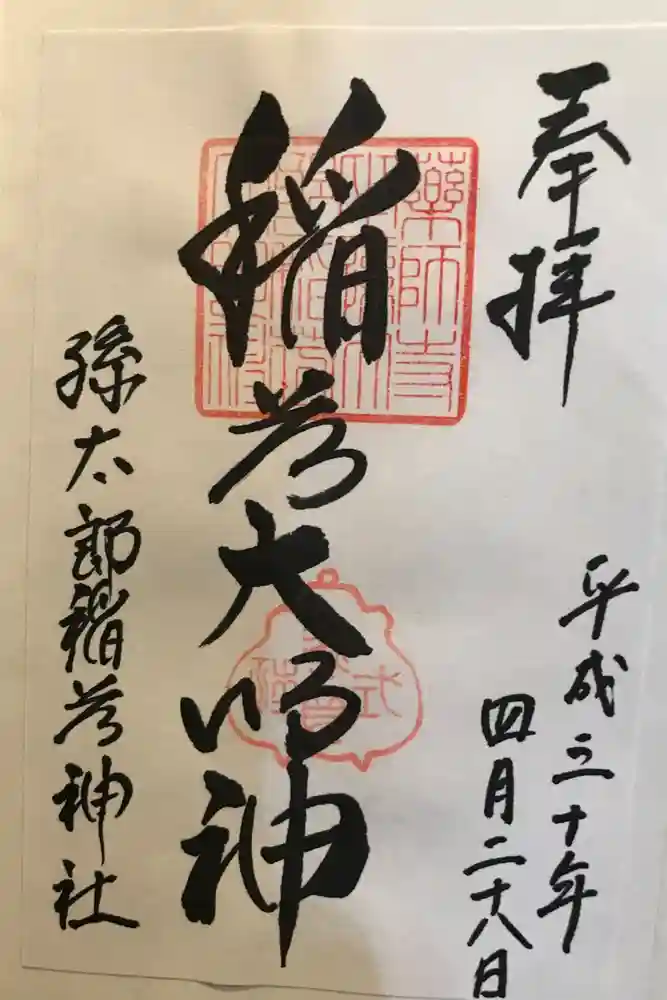 奉拝
平成三十年
四月二十八日
稲荷大明神
孫太郎稲荷神社
薬師寺